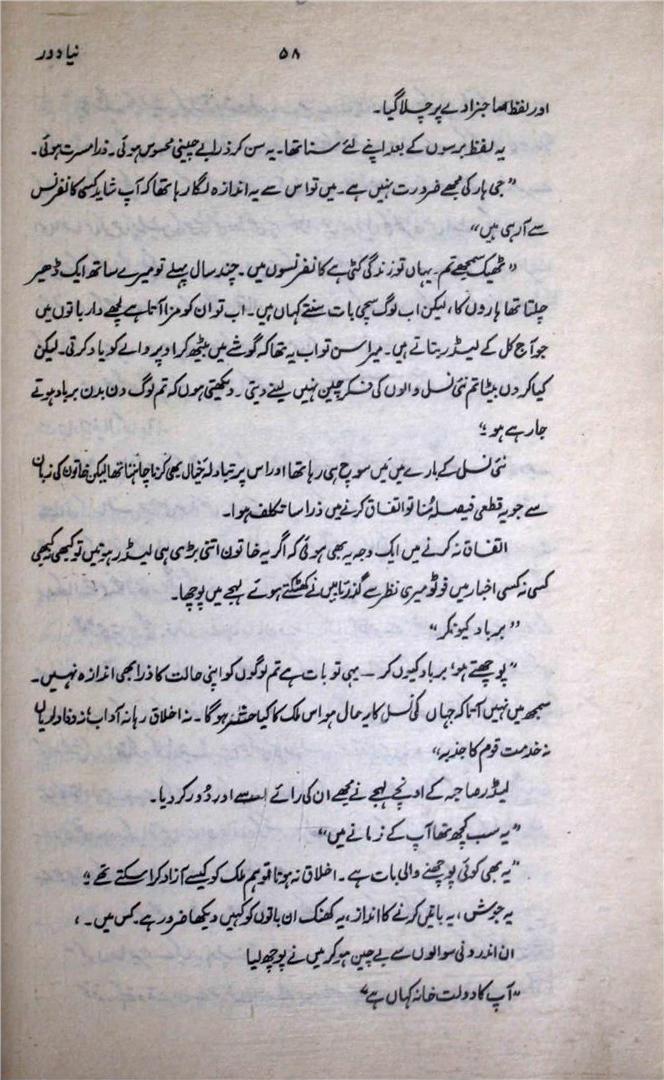 نیا دور
۵۸
اور لفظ صاحبزادے پر چلا گیا۔
یہ لفظ برسوں کے بعد اپنے لئے سنا تھا۔ یہ سن کر ذرا بے چینی محسوس ہوئی۔ ذرا مسرت ہوئی۔
”جی ہار کی مجھے ضرورت نہیں ہے۔ میں تو اس سے یہ اندازہ لگا رہا تھا کہ آپ شاید کسی کانفرنس
سے آ رہی ہیں“
”ٹھیک سمجھے تم۔ یہاں تو زندگی کٹی ہے کانفرنسوں میں۔ چند سال پہلے تو میرے ساتھ ایک ڈھیر
چلتا تھا ہاروں کا، لیکن اب لوگ سچی بات سنتے کہاں ہیں۔ اب تو ان کو مزا آتا ہے لچھے دار باتوں میں
جو آج کل کے لیڈر بتاتے ہیں۔ میرا سن تو اب یہ تھا کہ گوشے میں بیٹھ کر اوپر والے کو یاد کرتی۔ لیکن
کیا کروں بیٹا تم نئی نسل والوں کی فکر چین نہیں لینے دیتی۔ دیکھتی ہوں کہ تم لوگ دن بدن برباد ہوتے
جا رہے ہو؛“
نئی نسل کے بارے میں میں سوچ ہی رہا تھا اور اس پر تبادلہ خیال بھی کرنا چاہتا تھا لیکن خاتون کی زبان
سے جو یہ قطعی فیصلہ سُنا تو اتفاق کرنے میں ذرا سا تکلف ہوا۔
اتفاق نہ کرنے میں ایک وجہ یہ بھی ہوئی کہ اگر یہ خاتون اتنی بڑی ہی لیڈر ہوتیں تو کبھی کبھی
کسی نہ کسی اخبار میں فوٹو میری نظر سے گذرتا میں نے کھٹکتے ہوئے لہجے میں پوچھا۔
”برباد کیونکر“
”پوچھتے ہو، برباد کیوں کر — یہی تو بات ہے تم لوگوں کو اپنی حالت کا ذرا بھی اندازہ نہیں۔
سمجھ میں نہیں آتا کہ جہاں کی نسل کا یہ حال ہو اس ملک کا کیا حشر ہو گا۔ نہ اخلاق رہا نہ آداب، نہ وفاداریاں
نہ خدمت قوم کا جذبہ“
لیڈر صاحبہ کے اونچے لہجے نے مجھے ان کی رائے سے اور دُور کر دیا۔
”یہ سب کچھ تھا آپ کے زمانے میں“
”یہ بھی کوئی پوچھنے والی بات ہے۔ اخلاق نہ ہوتا تو ہم ملک کو کیسے آزاد کرا سکتے تھے؛“
یہ جوش، یہ باتیں کرنے کا انداز، یہ کھنک ان باتوں کو کہیں دیکھا ضرور ہے۔ کس میں۔،
ان اندرونی سوالوں سے بے چین ہو کر میں نے پوچھ لیا
”آپ کا دولت خانہ کہاں ہے“